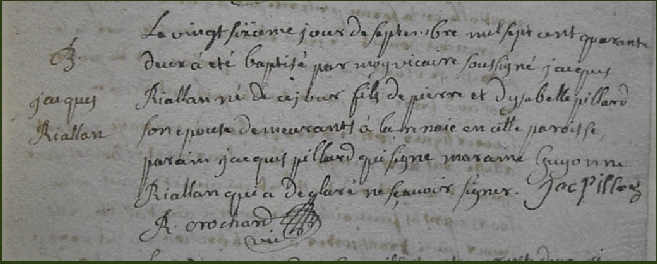 Le vingt sixieme jour de septembre mil sept cent quarante
B.
deux a été baptisé par moy vicaire soussigné jacques
jacques
Riallan né de ce jour fils de pierre et dysabelle pillard
Riallan
son epouse demeurants à la renaie en cette paroisse,
parain jacques pillard qui signe maraine Guyonne
Riallan qui a déglaré ne sçavoir signer. Jac Pillard
R crochard
vic